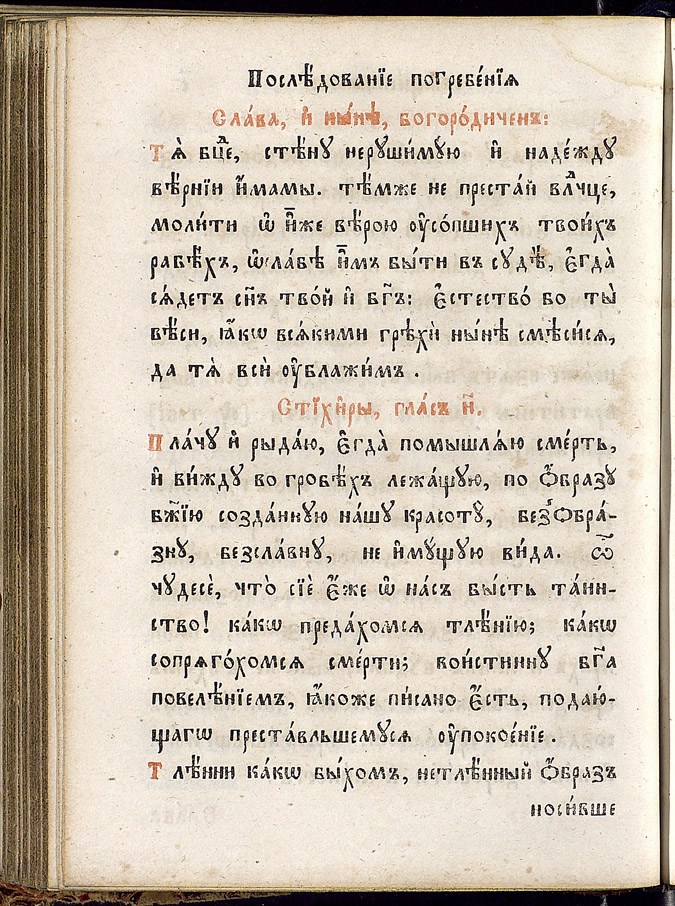 Послѣ́дованїе погребе́нїѧ
Сла́ва, и҆ ны́нѣ, богоро́диченъ:
Тѧ̀ бц҃е, стѣ́нꙋ нерꙋши́мꙋю и҆ наде́ждꙋ
вѣ́рнїи и҆́мамы. тѣ́мже не преста́й влⷣчце,
моли́ти ѡ҆ ни́же вѣ́рою оу҆со́пшихъ твои́хъ
рабѣ́хъ, ѡ҆сла́бѣ и҆̀мъ бы́ти въ сꙋдѣ̀, є҆гда̀
сѧ́детъ сн҃ъ тво́й и҆ бг҃ъ: є҆стество́ бо ты̀
вѣ́си, ꙗ҆́кѡ всѧ́кими грѣхѝ ны́нѣ смѣси́сѧ,
да тѧ̀ всѝ оу҆блажи́мъ.
Стїхи̑ры, гла́съ и҃.
Пла́чꙋ и҆ рыда́ю, є҆гда̀ помышлѧ́ю сме́рть,
и҆ ви́ждꙋ во гробѣ́хъ лежа́щꙋю, по ѻ҆́бразꙋ
бж҃їю созда́ннꙋю на́шꙋ красотꙋ̀, безѻбра́-
знꙋ, безсла́внꙋ, не и҆мꙋ́щꙋю ви́да. Ѽ
чꙋдесѐ, что̀ сїѐ є҆́же ѡ҆ на́съ бы́сть та́ин-
ство! ка́кѡ преда́хомсѧ тлѣ́нїю; ка́кѡ
сопрѧго́хомсѧ сме́рти; вои́стиннꙋ бг҃а
повелѣ́нїемъ, ꙗ҆́коже пи́сано є҆́сть, подаю́-
щагѡ преста́вльшемꙋсѧ оу҆покое́нїе.
Тлѣ́нни ка́кѡ бы́хомъ, нетлѣ́нный ѻ҆́бразъ
носи́вше